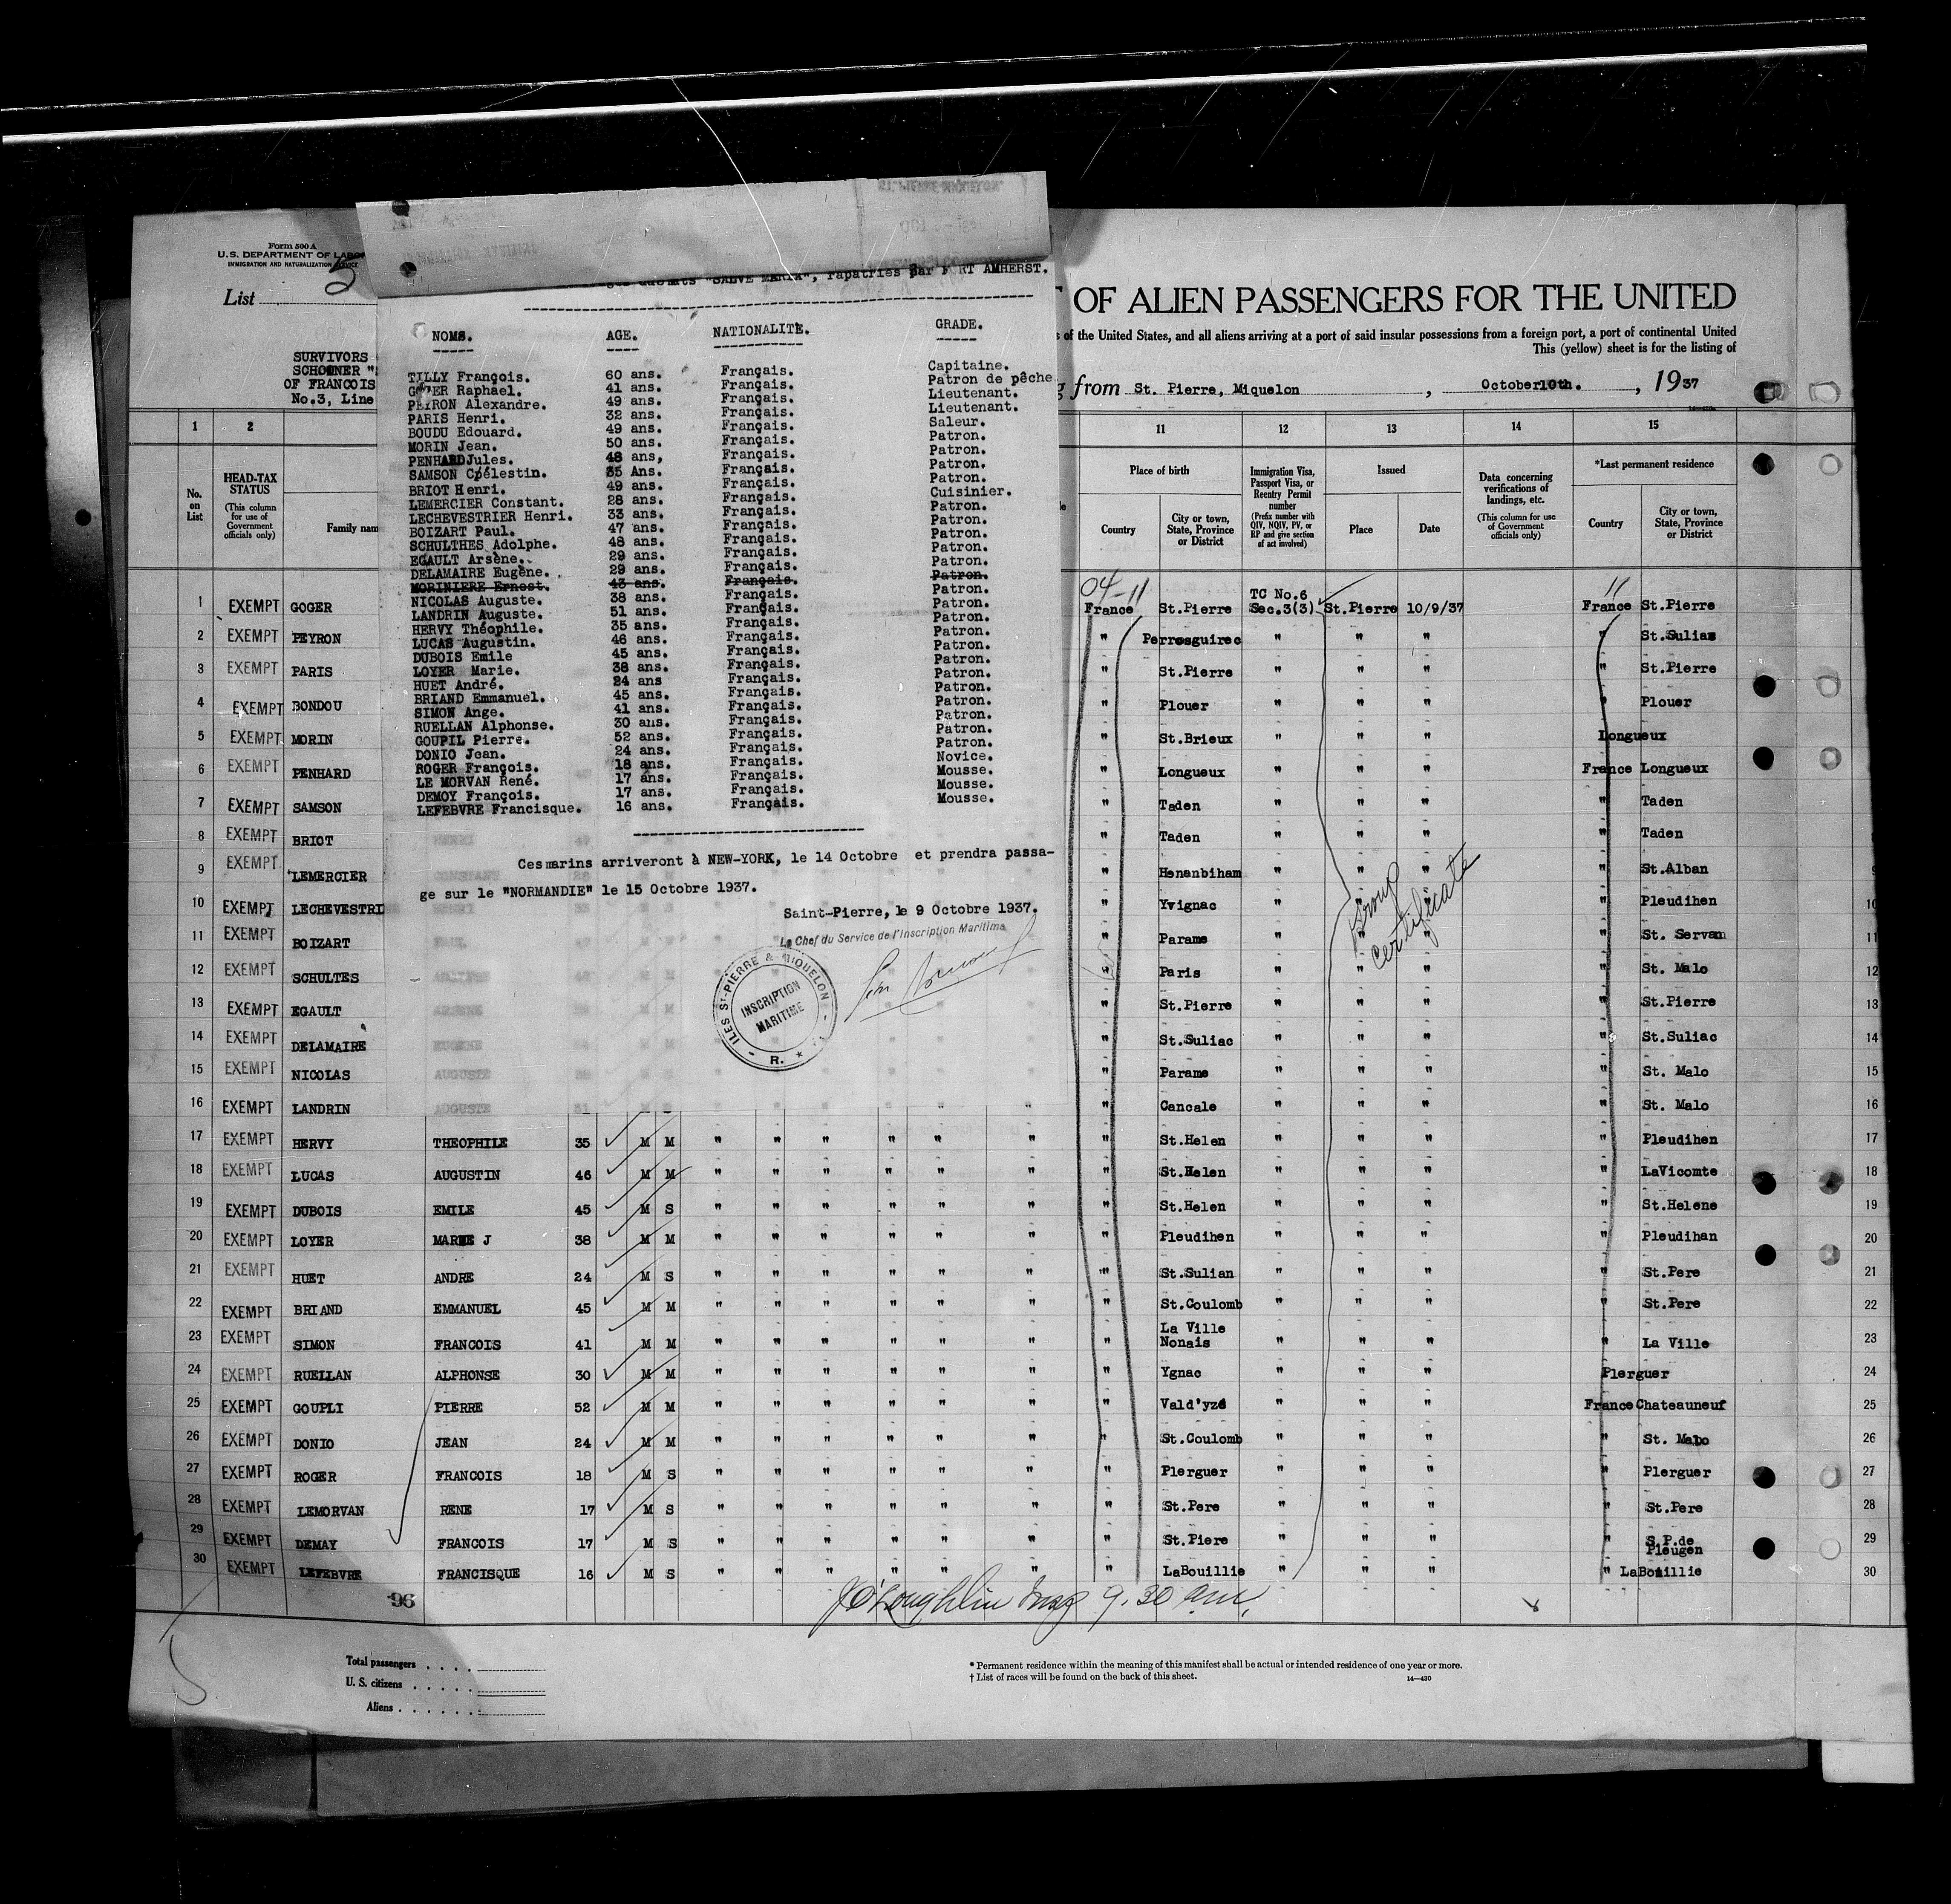 Form 500 A
U.S. DEPARTMENT OF LABOR
IMMIGRATION AND NATURALIZATION SERVICE
List 5
SURVIVORS
SCHOONER "
OF FRANCOIS
No.3, Line
"SALVE MARIA", rapatriés par FORT AMHERST.
NOMS. AGE. NATIONALITE. GRADE.
TILLY François. 60 ans. Français. Capitaine.
GOGER Raphael. 41 ans. Français. Patron de pêche
PEYRON Alexandre. 49 ans. Français. Lieutenant.
PARIS Henri. 32 ans. Français. Lieutenant.
BOUDU Edouard. 49 ans. Français. Saleur.
MORIN Jean. 50 ans. Français. Patron.
PENHARD Jules. 48 ans, Français. Patron.
SAMSON Célestin. 35 Ans. Français. Patron.
BRIOT Henri. 49 ans. Français. Patron.
LEMERCIER Constant. 28 ans. Français. Cuisinier.
LECHEVESTRIER Henri. 33 ans. Français. Patron.
BOIZART Paul. 47 ans. Français. Patron.
SCHULTHES Adolphe. 48 ans. Français. Patron.
EGAULT Arsène. 29 ans. Français. Patron.
DELAMAIRE Eugène. 29 ans. Français. Patron.
MORINIERE Ernest. 43 ans. Français. Patron.
NICOLAS Auguste. 38 ans. Français. Patron.
LANDRIN Auguste. 51 ans. Français. Patron.
HERVY Théophile. 35 ans. Français. Patron.
LUCAS Augustin. 46 ans. Français. Patron.
DUBOIS Emile 45 ans. Français. Patron.
LOYER Marie. 38 ans. Français. Patron.
HUET André. 24 ans Français. Patron.
BRIAND Emmanuel. 45 ans. Français. Patron.
SIMON Ange. 41 ans. Français. Patron.
RUELLAN Alphonse. 30 ans. Français. Patron.
GOUPIL Pierre. 52 ans. Français. Patron.
DONIO Jean. 24 ans. Français. Patron.
ROGER François. 18 ans. Français. Novice.
LE MORVAN René. 17 ans. Français. Mousse.
DEMOY François. 17 ans. Français. Mousse.
LEFEBVRE Francisque. 16 ans. Français. Mousse.
Ces marins arriveront à NEW-YORK, le 14 Octobre et prendra passa-
ge sur le "NORMANDIE" le 15 Octobre 1937.
Saint-Pierre, le 9 Octobre 1937.
Le Chef du Service de l'Inscription Maritime
ILES ST-PIERRE & MIQUELON
INSCRIPTION
MARITIME
R.
OF ALIEN PASSENGERS FOR THE UNITED
of the United States, and all aliens arriving at a port of said insular possessions from a foreign port, a port of continental United
This (yellow) sheet is for the listing of
from St. Pierre, Miquelon, October 10th., 1937
1 2 11 12 13 14 15
No. on List
HEAD-TAX STATUS
(This column for use of Government officials only)
Family nam
Place of birth
Country
City or town, State, Province or District
Immigration Visa, Passport Visa, or Reentry Permit number
(Prefix number with QIV, NQIV, PV, or RP and give section of act involved)
Issued
Place
Date
Data concerning verifications of landings, etc.
(This column for use of Government officials only)
*Last permanent residence
Country
City or town, State, Province or District
04-11 11
TC No.6
1 EXEMPT GOGER France St.Pierre Sec.3(3) St.Pierre 10/9/37 France St.Pierre
2 EXEMPT PEYRON " Perrosguirec " " " " St.Sulian
3 EXEMPT PARIS " St.Pierre " " " " St.Pierre
4 EXEMPT BONDOU " Plouer " " " " Plouer
5 EXEMPT MORIN " St.Brieux " " " Longueux
6 EXEMPT PENHARD " Longueux " " " France Longueux
7 EXEMPT SAMSON " Taden " " " " Taden
8 EXEMPT BRIOT " Taden " " " " Taden
9 EXEMPT LEMERCIER " Henanbiham " " " " St.Alban
10 EXEMPT LECHEVESTRI " Yvignac " " " " Pleudihen 10
11 EXEMPT BOIZART " Parame " " " " St. Servan 11
12 EXEMPT SCHULTES " Paris " " " " St. Malo 12
13 EXEMPT EGAULT " St.Pierre " " " " St.Pierre 13
14 EXEMPT DELAMAIRE " St.Suliac " " " " St.Suliac 14
15 EXEMPT NICOLAS " Parame " " " " St. Malo 15
16 EXEMPT LANDRIN " Cancale " " " " St. Malo 16
Group certificate
17 EXEMPT HERVY THEOPHILE 35 M M " " " " " " " St.Helen " " " " Pleudihen 17
18 EXEMPT LUCAS AUGUSTIN 46 M M " " " " " " " St.Helen " " " " LaVicomte 18
19 EXEMPT DUBOIS EMILE 45 M S " " " " " " " St.Helen " " " " St.Helene 19
20 EXEMPT LOYER MARIE J 38 M M " " " " " " " Pleudihen " " " " Pleudihan 20
21 EXEMPT HUET ANDRE 24 M S " " " " " " " St.Sulian " " " " St.Pere 21
22 EXEMPT BRIAND EMMANUEL 45 M M " " " " " " " St.Coulomb " " " " St.Pere 22
23 EXEMPT SIMON FRANCOIS 41 M M " " " " " " " La Ville Nonais " " " " La Ville 23
24 EXEMPT RUELLAN ALPHONSE 30 M M " " " " " " " Ygnac " " " Plerguer 24
25 EXEMPT GOUPLI PIERRE 52 M M " " " " " " " Vald'yzé " " " France Chateauneuf 25
26 EXEMPT DONIO JEAN 24 M M " " " " " " " St.Coulomb " " " " St. Malo 26
27 EXEMPT ROGER FRANCOIS 18 M S " " " " " " " Plerguer " " " " Plerguer 27
28 EXEMPT LEMORVAN RENE 17 M S " " " " " " " St.Pere " " " " St.Pere 28
29 EXEMPT DEMAY FRANCOIS 17 M S " " " " " " " St.Piere " " " " S.P.de Pleugen 29
30 EXEMPT LEFEBVRE FRANCISQUE 16 M S " " " " " " " LaBouillie " " " " LaBouillie 30
96
J O'Loughlin Insp 9.30 am.
Total passengers
U. S. citizens
Aliens
* Permanent residence within the meaning of this manifest shall be actual or intended residence of one year or more.
† List of races will be found on the back of this sheet.
14—430